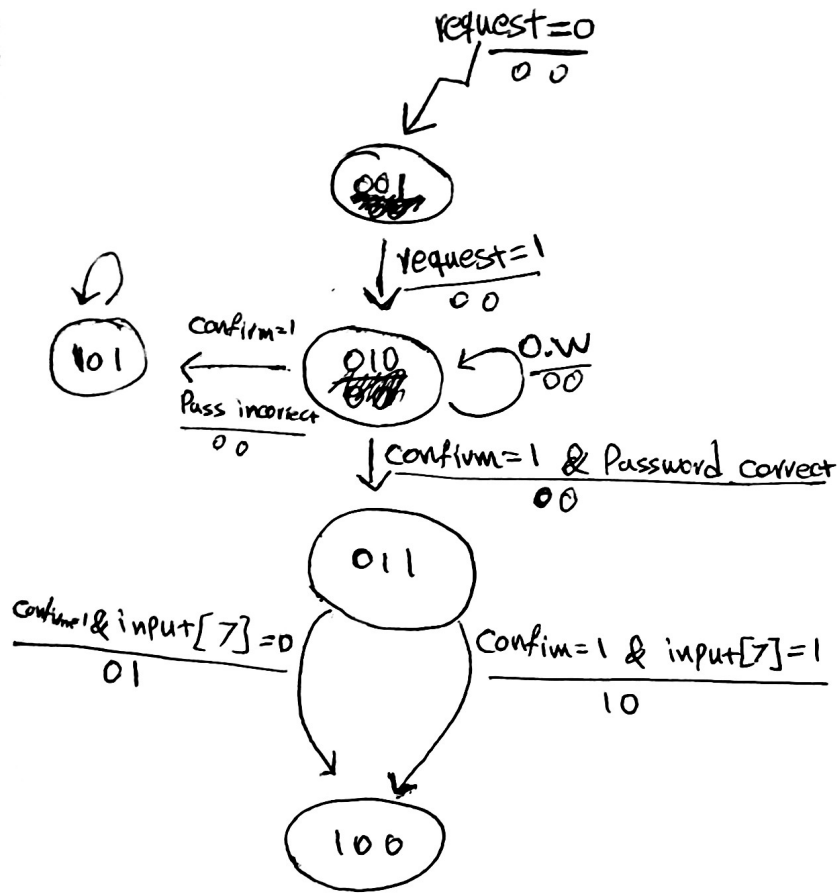 request=0
0 0
001
request=1
0 0
confirm=1
101
010
O.W
00
Pass incorrect
0 0
confirm=1 & Password correct
00
011
confirm=1 & input[7]=0
01
Confim=1 & input[7]=1
10
100